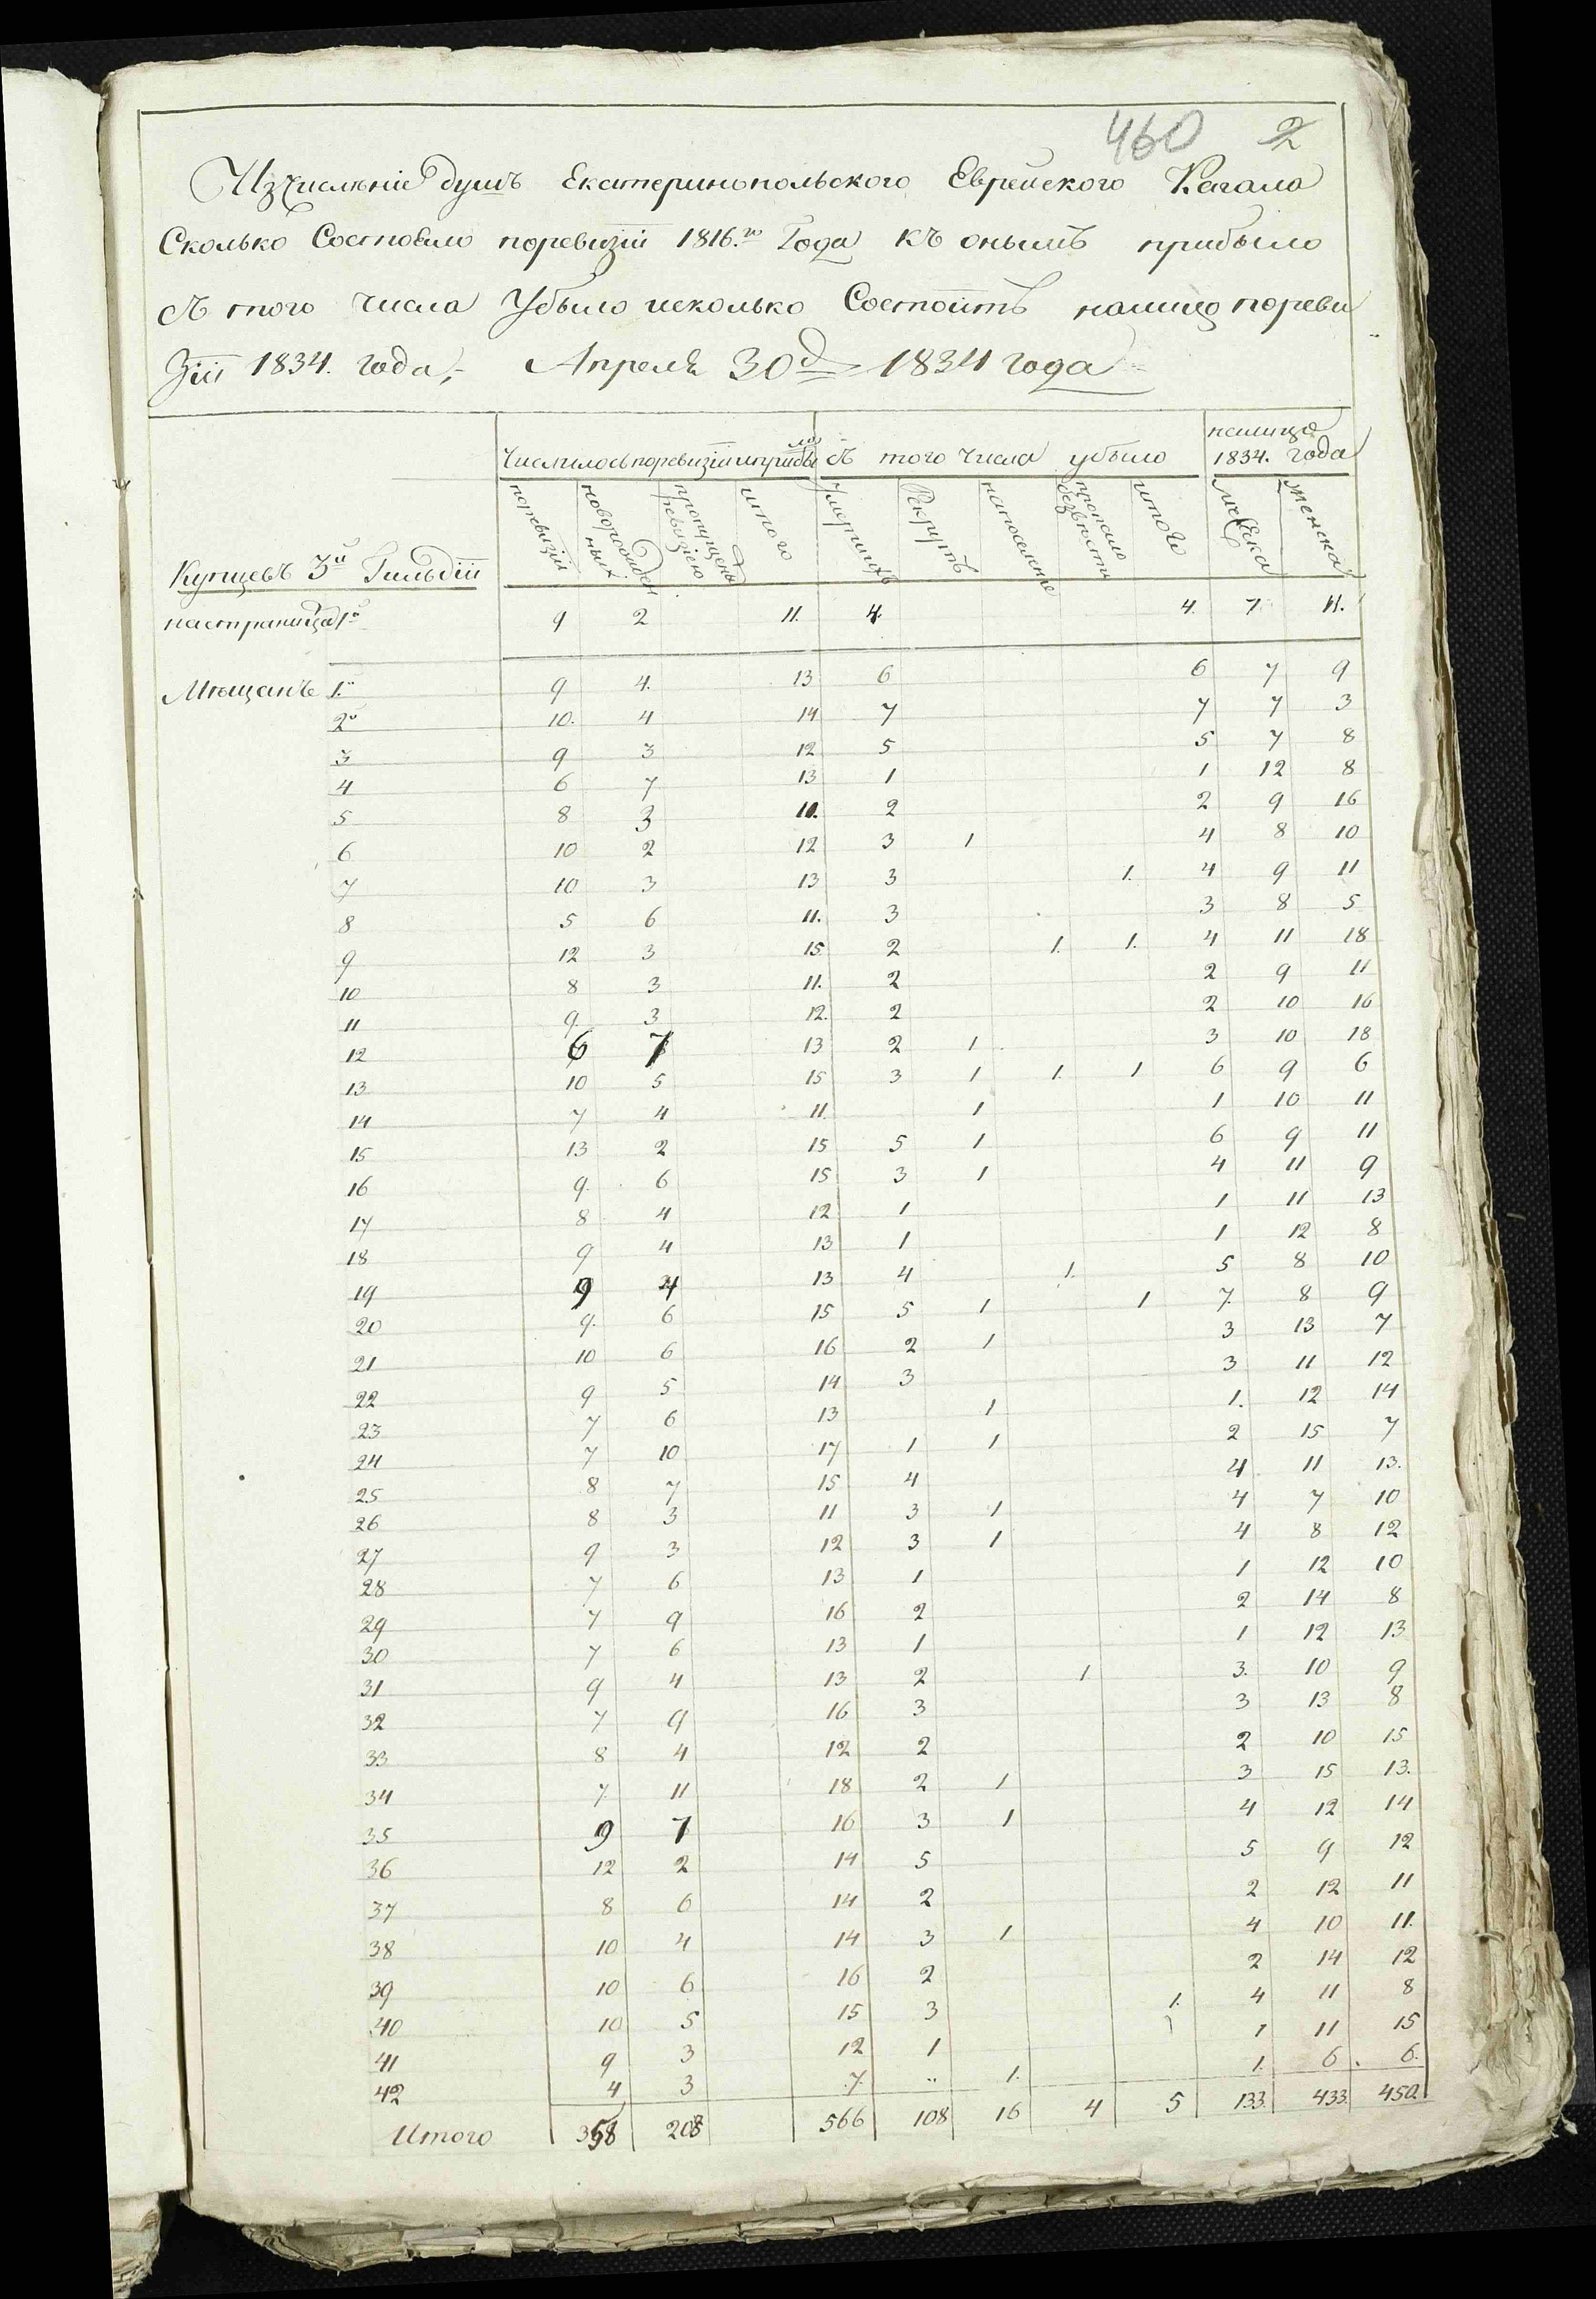 460 2
Изчисленіе душъ Екатеринопольского Еврейского Кагала
Сколько Состояло поревизіи 1816.го Года къ онымъ прибыло
съ того числа Убыло исколько Состоитъ налицо пореви
Зіи 1834. года,- Апреля 30д 1834 года
Числилось поревизіи иприбыло съ того числа убыло налицо 1834. года
поревизіи новорожденныхъ пропущены ревизіею итого Умершихъ Рекрутъ напоселеніе пропало безвѣсти итого Мужска Женска
Купцевъ 3й Гильдіи
настраница 1я 9 2 11. 4. 4. 7 11.
Мѣщанъ 1.я 9 4. 13 6 6 7 9
2я 10. 4 14 7 7 7 3
3 9 3 12 5 5 7 8
4 6 7 13 1 1 12 8
5 8 3 11. 2 2 9 16
6 10 2 12 3 1 4 8 10
7 10 3 13 3 1. 4 9 11
8 5 6 11. 3 3 8 5
9 12 3 15 2 1. 1. 4 11 18
10 8 3 11. 2 2 9 11
11 9. 3 12. 2 2 10 16
12 6 7 13 2 1 3 10 18
13 10 5 15 3 1 1. 1 6 9 6
14 7 4 11. 1 1 10 11
15 13 2 15 5 1 6 9 11
16 9. 6 15 3 1 4 11 9
17 8 4 12 1 1 11 13
18 9 4 13 1 1 12 8
19 9 4 13 4 1. 5 8 10
20 9. 6 15 5 1 1 7. 8 9
21 10 6 16 2 1 3 13 7
22 9 5 14 3 3 11 12
23 7 6 13 1 1. 12 14
24 7 10 17 1 1 2 15 7
25 8 7 15 4 4 11 13.
26 8 3 11 3 1 4 7 10
27 9 3 12 3 1 4 8 12
28 7 6 13 1 1 12 10
29 7 9 16 2 2 14 8
30 7 6 13 1 1 12 13
31 9 4 13 2 1 3. 10 9
32 7 9 16 3 3 13 8
33 8 4 12 2 2 10 15
34 7. 11 18 2 1 3 15 13.
35 9 7 16 3 1 4 12 14
36 12 2 14 5 5 9 12
37 8 6 14 2 2 12 11
38 10 4 14 3 1 4 10 11.
39 10 6 16 2 2 14 12
40 10 5 15 3 1. 4 11 8
41 9 3 12 1 1 11 15
42 4 3 7. .. 1. 1. 6. 6.
Итого 358 208 566 108 16 4 5 133. 433. 450.